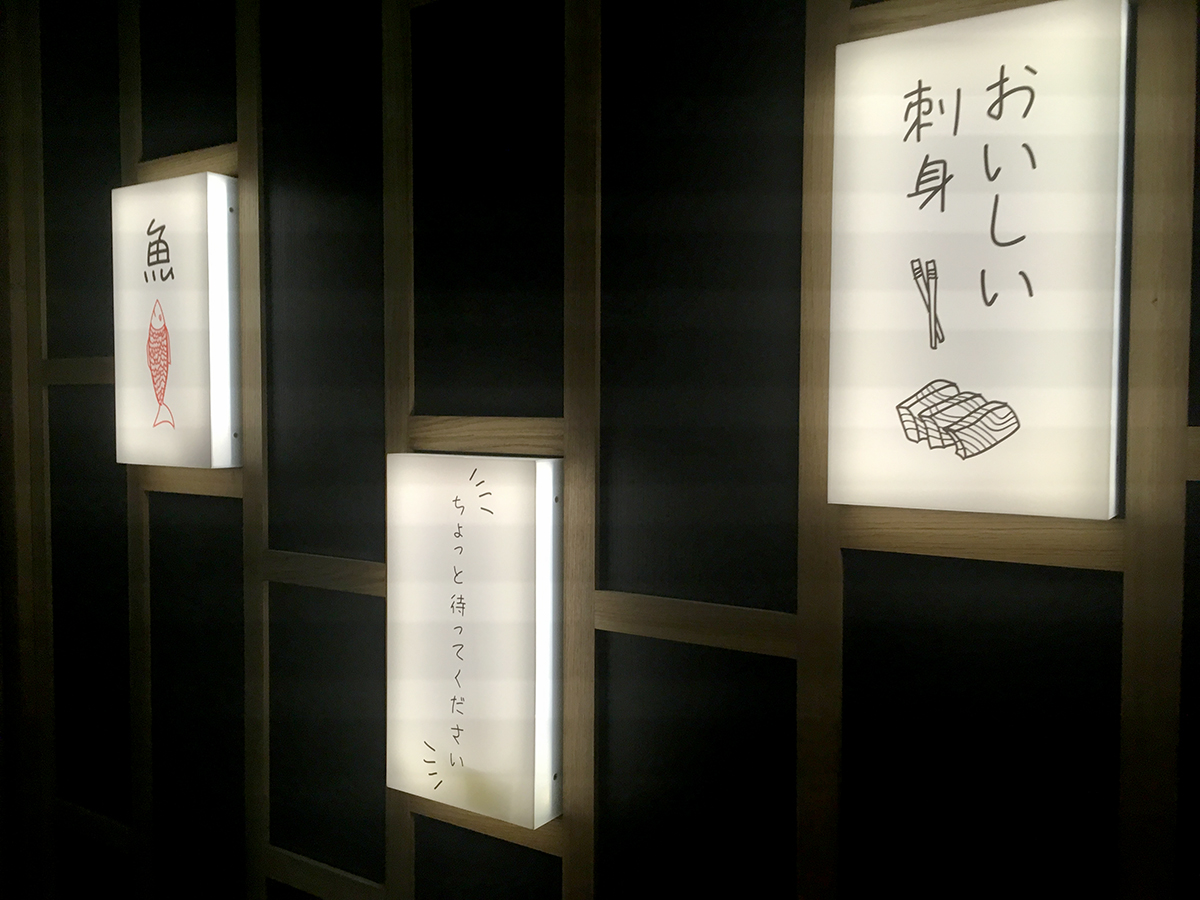 魚
ちょっと待ってください
おいしい
刺身